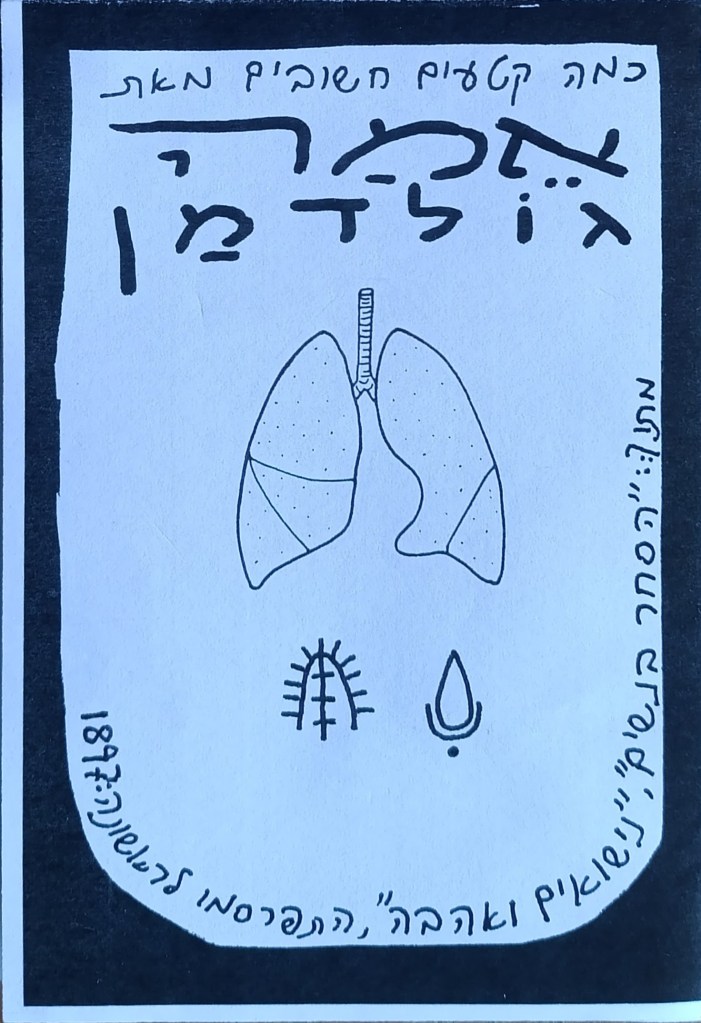 כמה קטעים חשובים מאת
אמַרִי
גוֹלדמַן
מתוך: "הסחר בנשים", "נישואים ואהבה", התפרסמו לראשונה: 1897